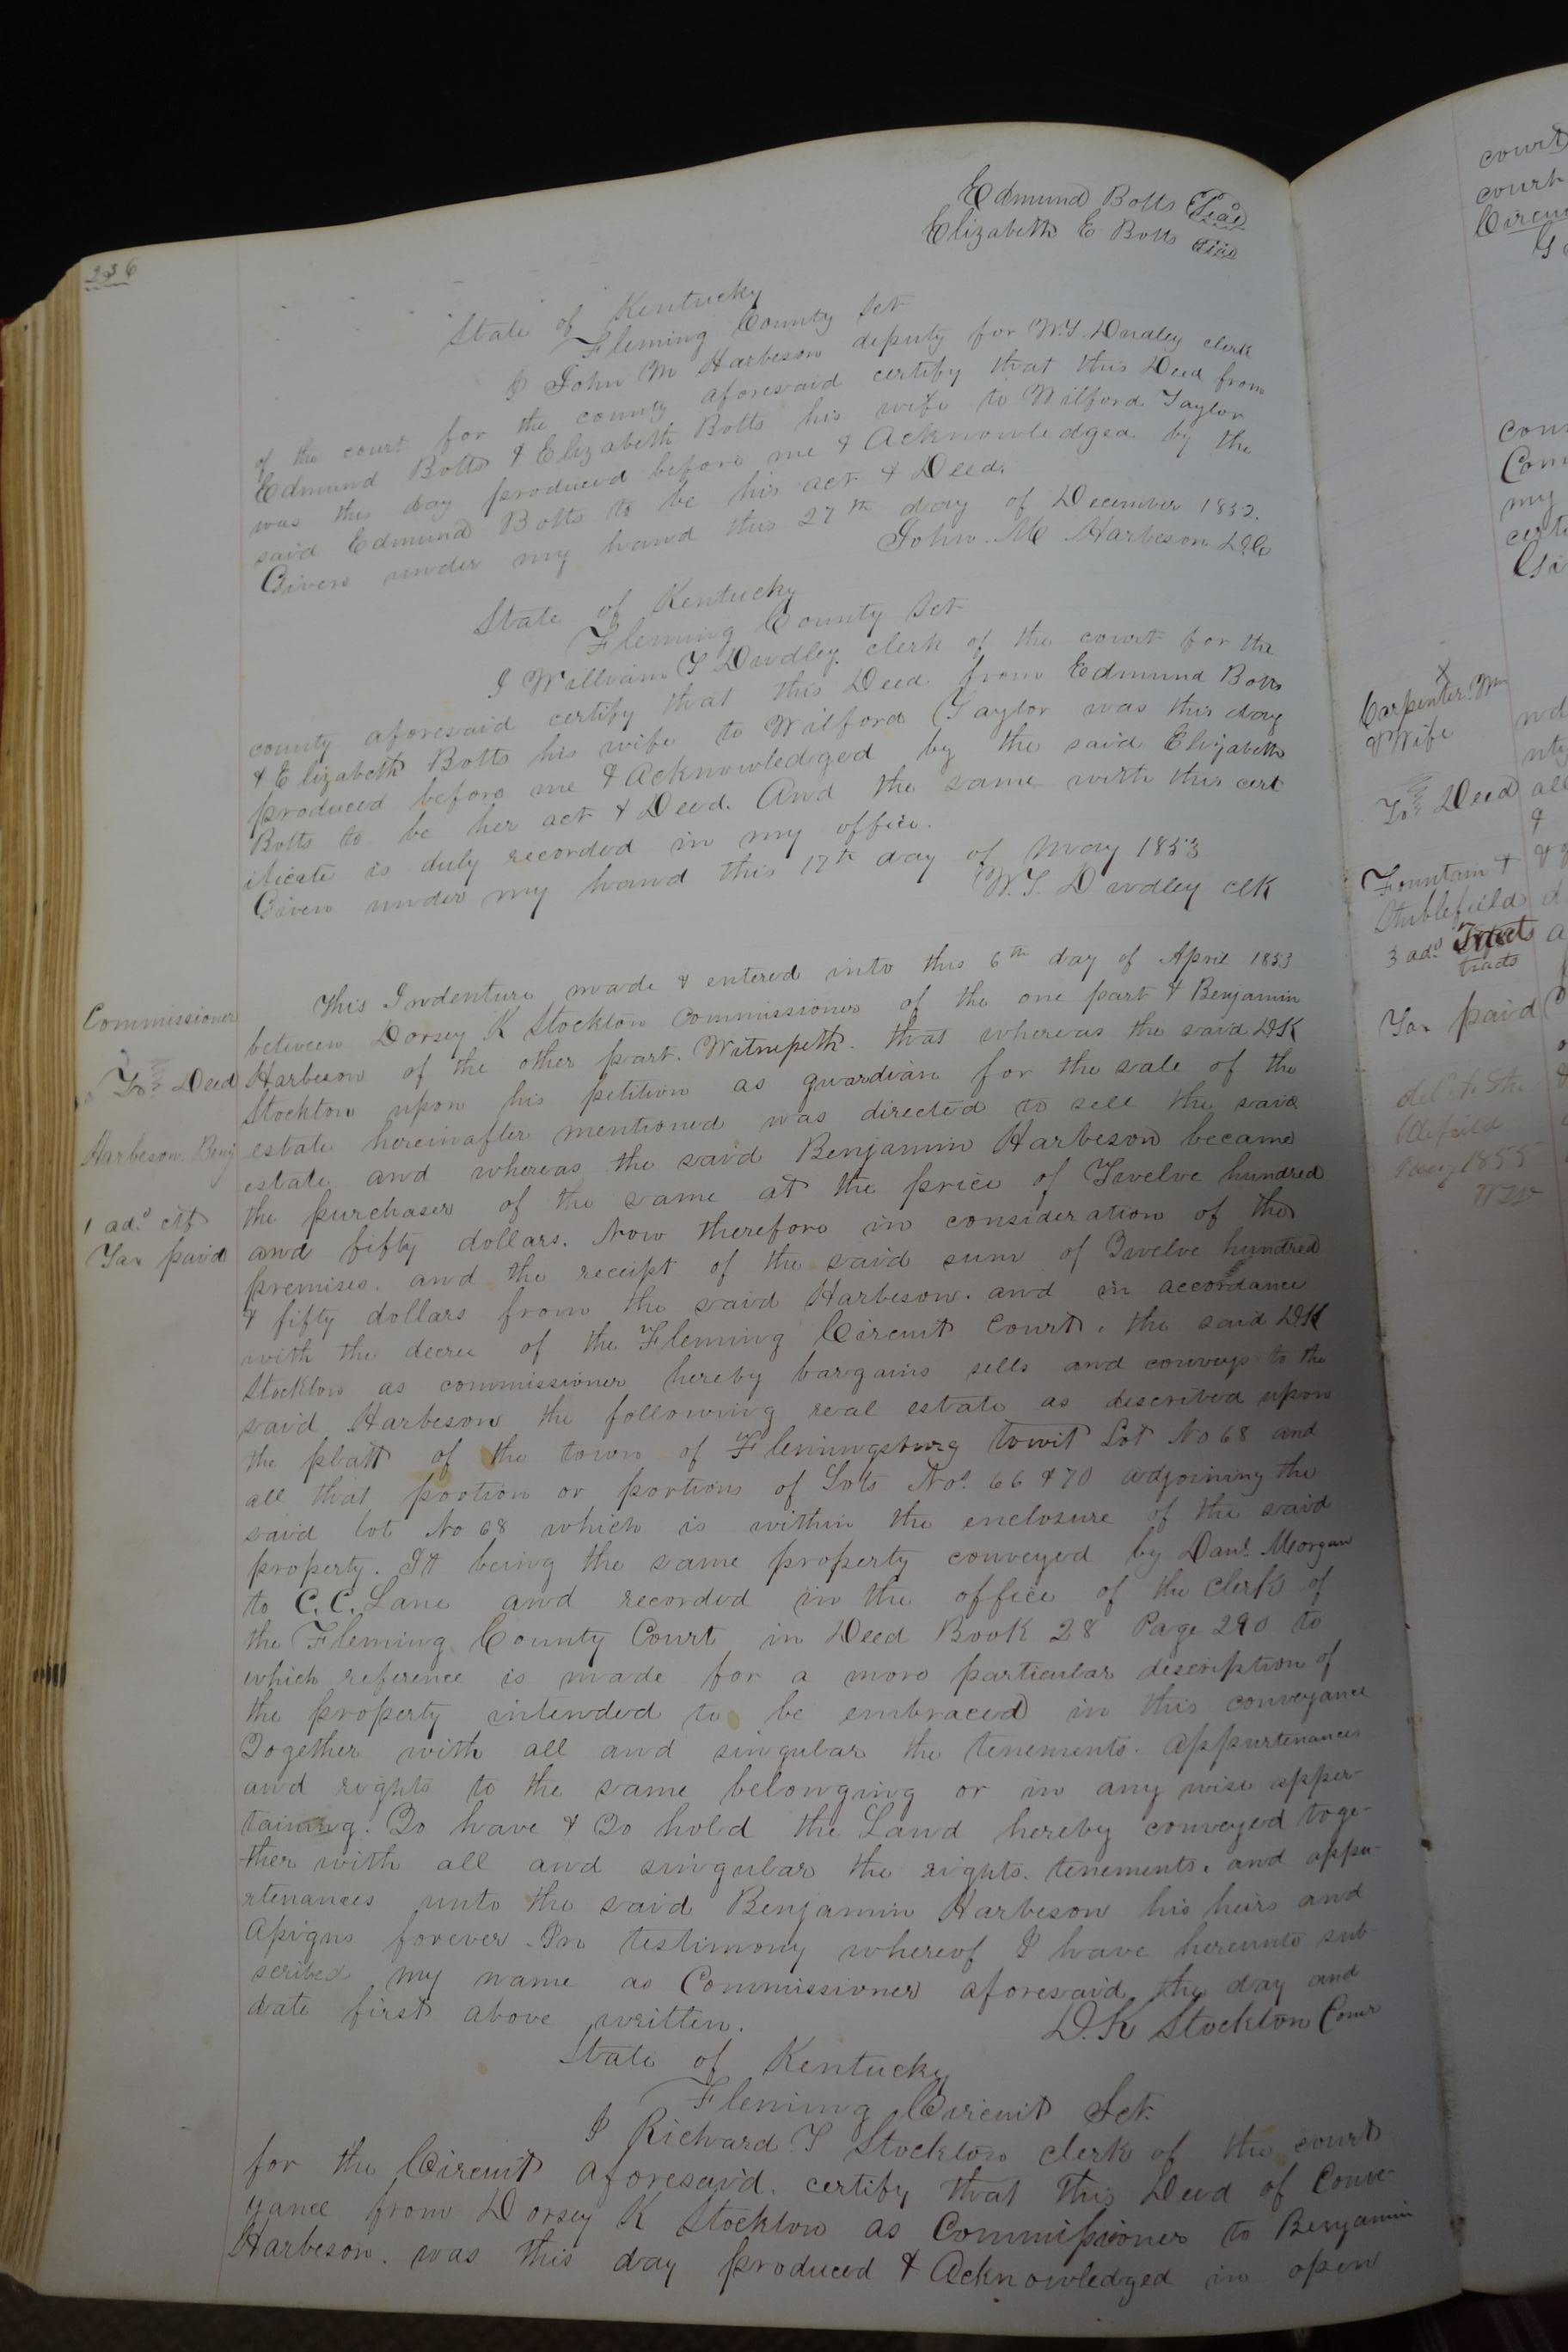 236
Edmund Botts Seal
Elizabeth E Botts Seal
State of Kentucky
Fleming County Sct
I John M Harbeson deputy for W.T. Dudley clerk
of the court for the county aforesaid certify that this Deed from
Edmund Botts & Elizabeth Botts his wife to Wilford Taylor
was this day produced before me & Acknowledged by the
said Edmund Botts to be his act & Deed.
Given under my hand this 27th day of December 1852.
John. M Harbeson D.C.
State of Kentucky
Fleming County Sct
I William T Dudley clerk of the court for the
county aforesaid certify that this Deed from Edmund Botts
& Elizabeth Botts his wife to Wilford Taylor was this day
produced before me & Acknowledged by the said Elizabeth
Botts to be her act & Deed. And the same with this cert
ificate is duly recorded in my office.
Given under my hand this 17th day of May 1853
W.T. Dudley clk
Commissioner
To Deed
Harbeson. Benj
1 ad.
Tax paid
This Indenture made & entered into this 6th day of April 1853
between Dorsey K Stockton Commissioner of the one part & Benjamin
Harbeson of the other part. Witnesseth. that whereas the said D.K
Stockton upon his petition as guardian for the sale of the
estate hereinafter mentioned was directed to sell the said
estate and whereas the said Benjamin Harbeson became
the purchaser of the same at the price of Twelve hundred
and fifty dollars. Now therefore in consideration of the
premises. and the receipt of the said sum of Twelve hundred
& fifty dollars from the said Harbeson. and in accordance
with the decree of the Fleming Circuit Court. the said D.K
Stockton as commissioner hereby bargains sells and conveys to the
said Harbeson the following real estate as described upon
the platt of the town of Flemingsburg towit Lot No 68 and
all that portion or portions of Lots Nos. 66 & 70 adjoining the
said lot No 68 which is within the enclosure of the said
property. It being the same property conveyed by Danl. Morgan
to C. C. Lane and recorded in the office of the clerk of
the Fleming County Court in Deed Book 28 Page 290 to
which reference is made for a more particular description of
the property intended to be embraced in this conveyance
Together with all and singular the tenements. appurtenances
and rights to the same belonging or in any wise apper-
taining. To have & To hold the Land hereby conveyed toge-
ther with all and singular the rights. tenements. and appu-
rtenances unto the said Benjamin Harbeson his heirs and
assigns forever. In testimony whereof I have hereunto sub
scribed my name as Commissioner aforesaid the day and
date first above written.
D. K Stockton Comr
State of Kentucky
Fleming Circuit Sct.
I Richard T Stockton clerk of the court
for the Circuit aforesaid. certify that this Deed of Conve-
yance from Dorsey K Stockton as Commissioner to Benjamin
Harbeson. was this day produced & Acknowledged in open
court
court
Circu
con
Com
my
certi
Gi
Carpenter Wm
& Wife
To Deed
Fountain &
Stublefield
3 ad.
tracts
Tax paid
1855